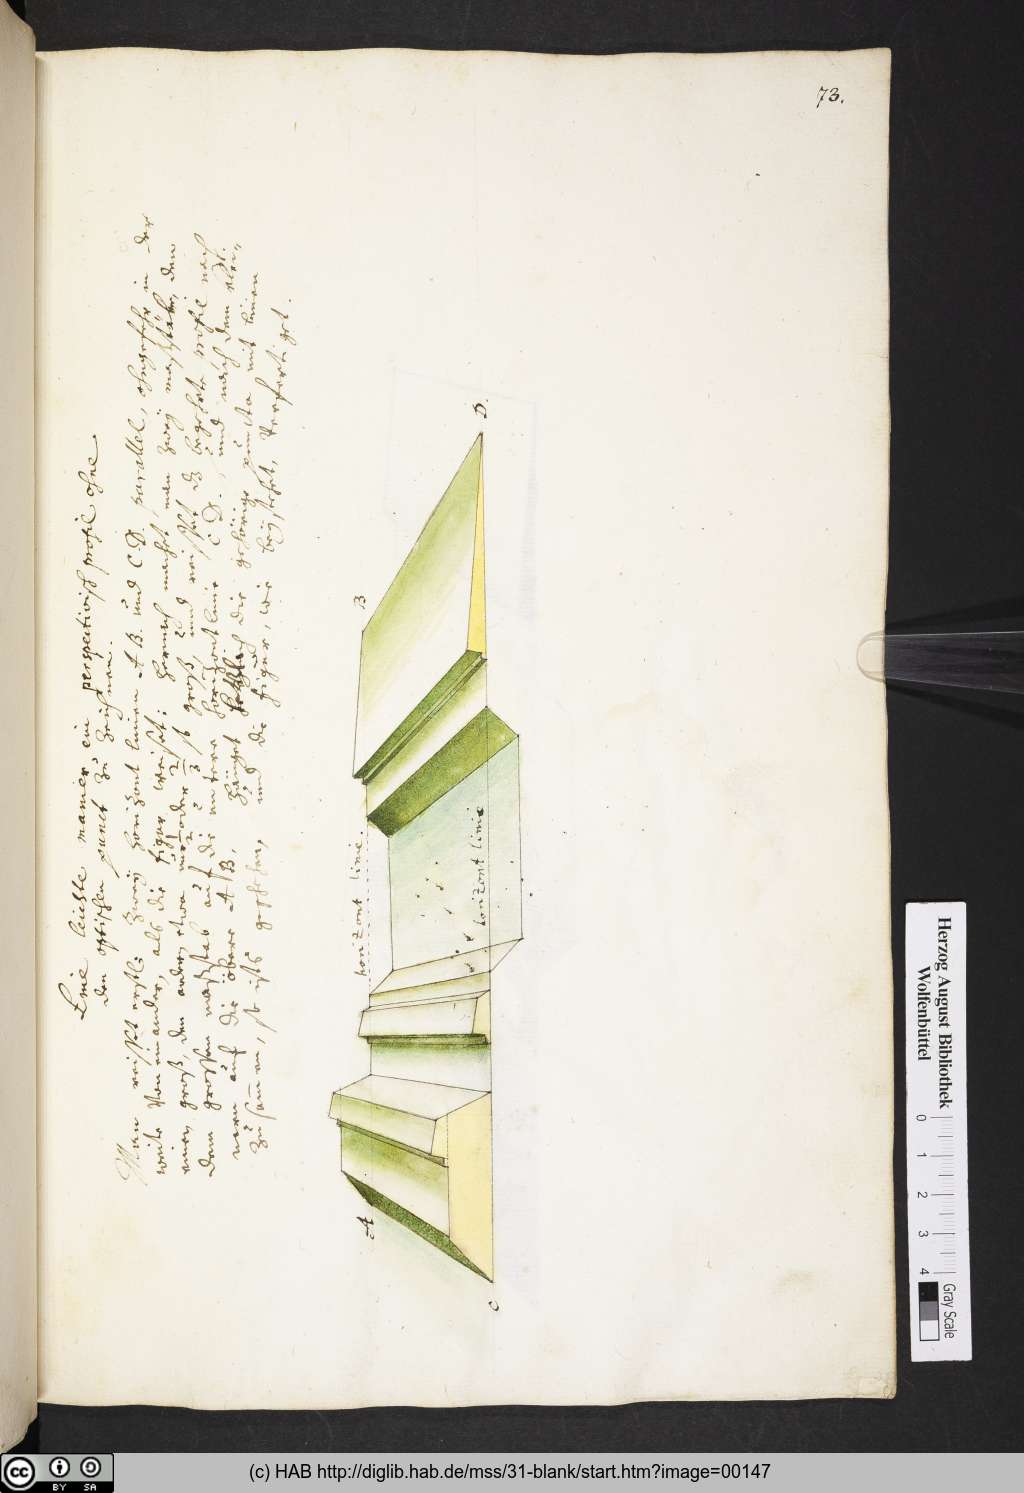 73.
Eine leichte manier ein perspectivisch profil ohne
den optischen punct zu zeichnen.
Man reisset erstl: zweÿ horizont linien A B. und C.D. parallel, ohngefehr in der
weite von einander, als die figur weiset: hernach machet man zweÿ maßstäbe, den
einen groß, den andern etwa oder so groß, und reisset das begehrte profil nach
dem großen maßstab auf die untere horizont linie C D. und nach dem klei-
nern auf die obere A B, hänget die gehörige puncta mit linien
zusammen, so ists geschehen, und die figur, wie beÿstehet, verfertiget.
A
B
C
D.
horizont linie.
horizont linie
Herzog August Bibliothek
Wolfenbüttel
0 1 2 3 4
Gray Scale
cc BY SA
(c) HAB http://diglib.hab.de/mss/31-blank/start.htm?image=00147